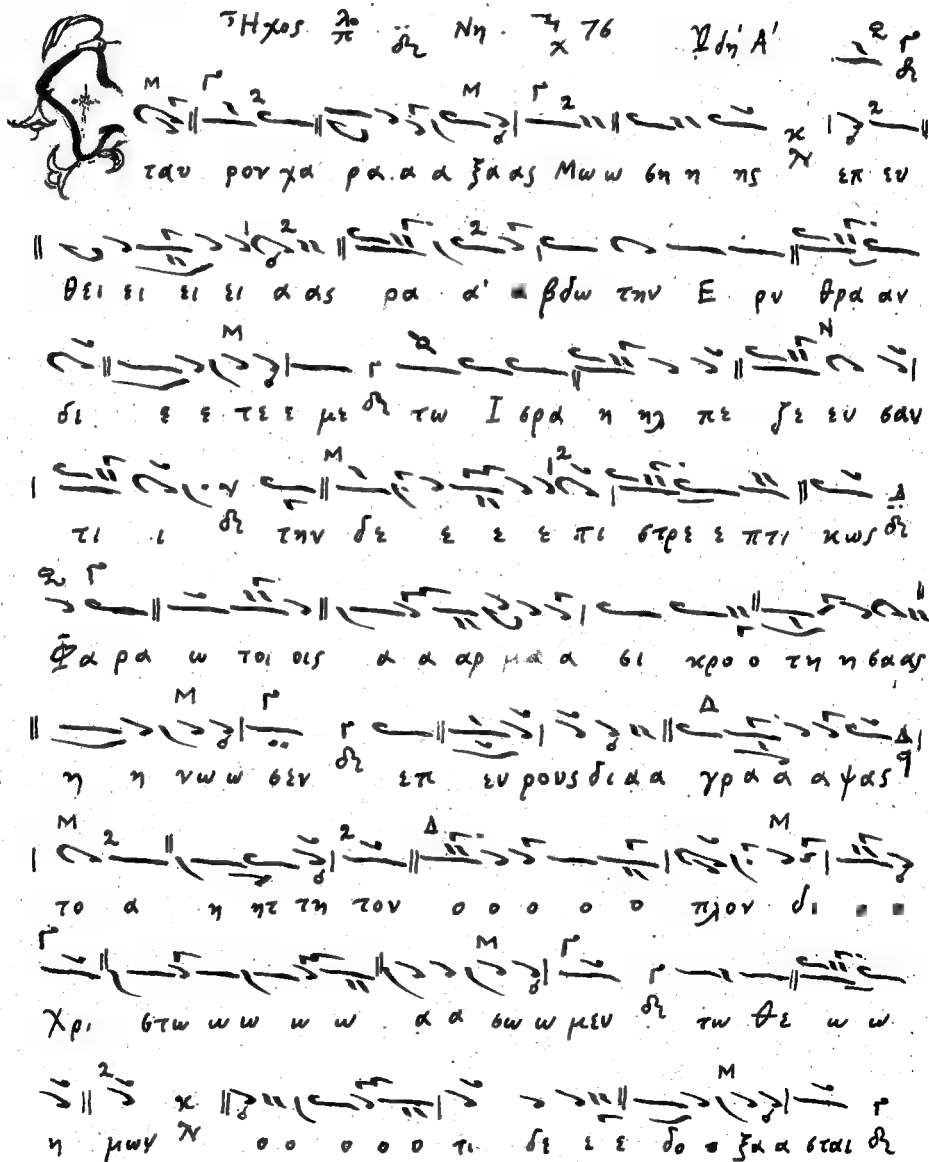 Ἦχος λ π δ Νη 76 ᾨδή Α΄
Σταυ ρον χα ρα α α ξα ας Μω ω ση η ης επ ευ
θει ει ει ει α ας ρα α' βδω την Ε ρυ θρα αν
δι ε ε τε ε με τω Ι σρα η ηλ πε ζε ευ σαν
τι ι την δε ε ε ε πι στρε ε πτι κως
Φα ρα ω τοι οις α α αρ μα α σι κρο ο τη η σα ας
η η νω ω σεν επ ευ ρους δι α α γρα α α ψας
το α η ητ τη τον ο ο ο ο ο πλον δι
Χρι στω ω ω ω ω α α σω ω μεν τω Θε ω ω
η μων ο ο ο ο ο τι δε ε ε δο ο ξα α σται